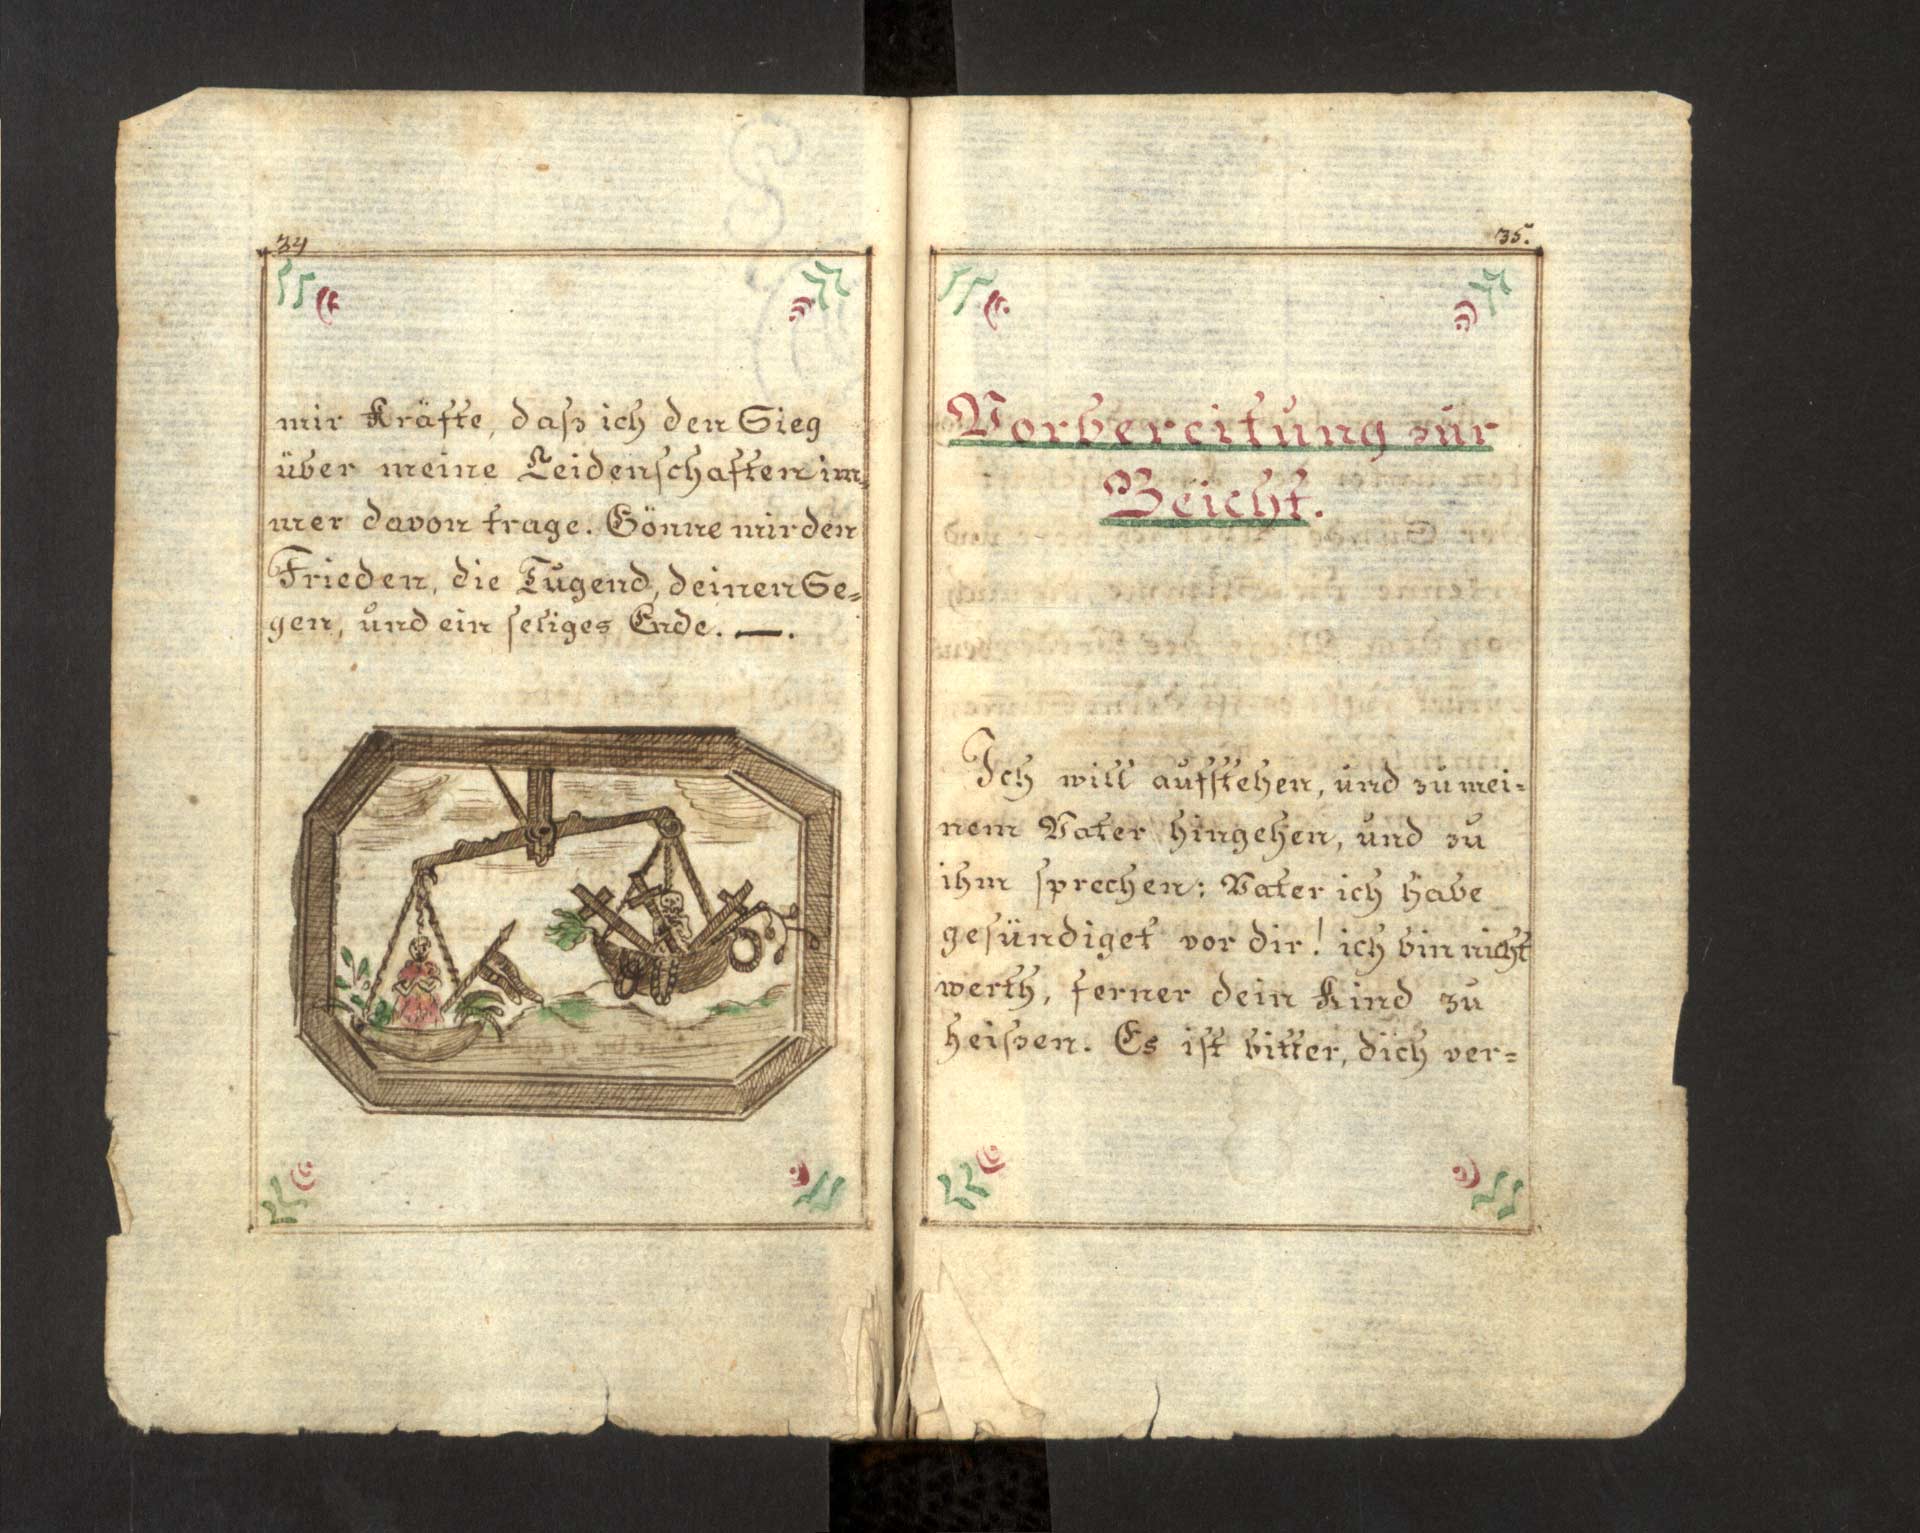 34
mir Kräfte, daß ich den Sieg
über meine Leidenschaften im=
mer davon trage. Gönne mir den
Frieden, die Tugend, deinen Se=
gen, und ein seliges Ende. —.
35.
Vorbereitung zur
Beicht.
Ich will aufstehen, und zu mei=
nem Vater hingehen, und zu
ihm sprechen: Vater ich habe
gesündiget vor dir! ich bin nicht
werth, ferner dein Kind zu
heißen. Es ist bitter, dich ver=